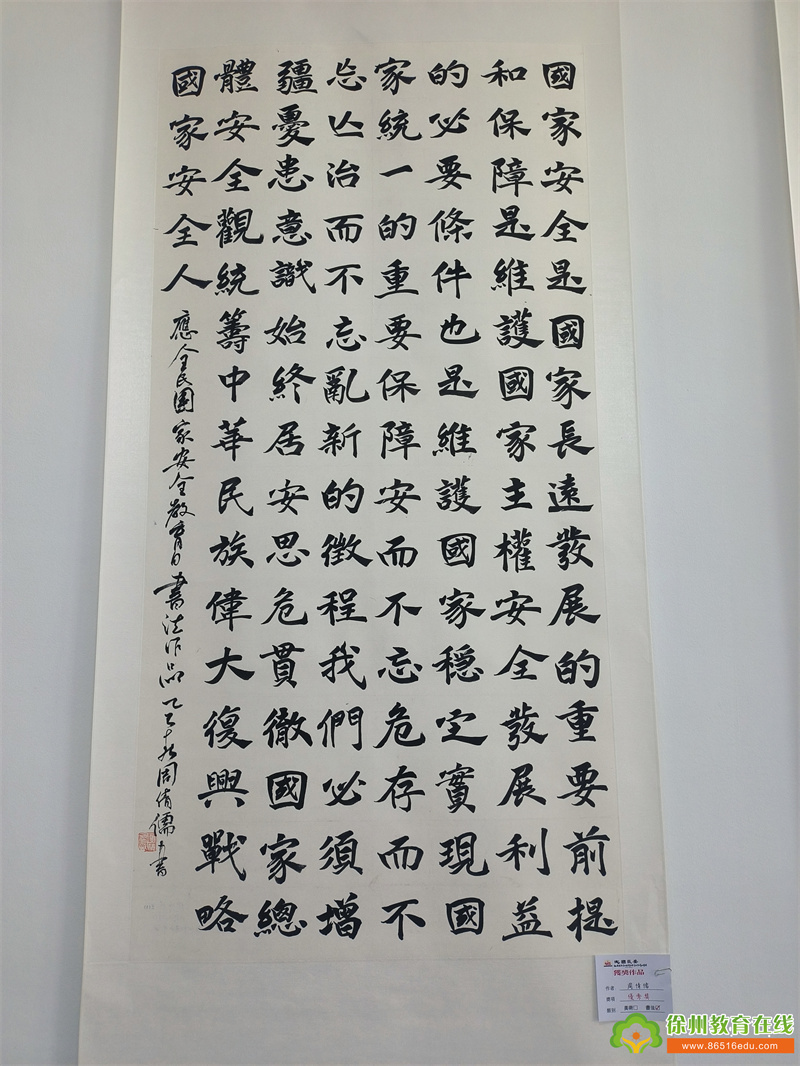 國家安全是國家長遠發展的重要前提
和保障是維護國家主權安全發展利益
的必要條件也是維護國家穩定實現國
家統一的重要保障安而不忘危存而不
忘亾治而不忘亂新的徵程我們必須增
疆憂患意識始終居安思危貫徹國家總
體安全觀統籌中華民族偉大復興戰略
國家安全人
應全民國家安全教育日書法作品乙巳周倩儒書
作品
作者
徐州教育在线
www.86516edu.com